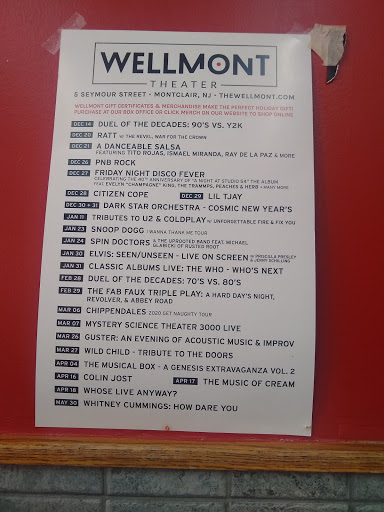 WELLMONT
THEATER
5 SEYMOUR STREET • MONTCLAIR, NJ • THEWELLMONT.COM
WELLMONT GIFT CERTIFICATES & MERCHANDISE MAKE THE PERFECT HOLIDAY GIFT!
PURCHASE AT OUR BOX OFFICE OR CLICK MERCH ON OUR WEBSITE TO SHOP ONLINE
DEC 14 DUEL OF THE DECADES: 90'S VS. Y2K
DEC 20 RATT W/ THE REVEL, WAR FOR THE CROWN
DEC 21 A DANCEABLE SALSA
FEATURING TITO ROJAS, ISMAEL MIRANDA, RAY DE LA PAZ & MORE
DEC 26 PNB ROCK
DEC 27 FRIDAY NIGHT DISCO FEVER
CELEBRATING THE 40TH ANNIVERSARY OF "A NIGHT AT STUDIO 54" THE ALBUM
FEAT. EVELYN "CHAMPAGNE" KING, THE TRAMMPS, PEACHES & HERB + MANY MORE
DEC 28 CITIZEN COPE DEC 29 LIL TJAY
DEC 30 + 31 DARK STAR ORCHESTRA - COSMIC NEW YEAR'S
JAN 11 TRIBUTES TO U2 & COLDPLAY W/ UNFORGETTABLE FIRE & FIX YOU
JAN 23 SNOOP DOGG I WANNA THANK ME TOUR
JAN 24 SPIN DOCTORS & THE UPROOTED BAND FEAT. MICHAEL
GLABICKI OF RUSTED ROOT
JAN 30 ELVIS: SEEN/UNSEEN - LIVE ON SCREEN W/ PRISCILLA PRESLEY
& JERRY SCHILLING
JAN 31 CLASSIC ALBUMS LIVE: THE WHO - WHO'S NEXT
FEB 28 DUEL OF THE DECADES: 70'S VS. 80'S
FEB 29 THE FAB FAUX TRIPLE PLAY: A HARD DAY'S NIGHT,
REVOLVER, & ABBEY ROAD
MAR 06 CHIPPENDALES 2020 GET NAUGHTY TOUR
MAR 07 MYSTERY SCIENCE THEATER 3000 LIVE
MAR 26 GUSTER: AN EVENING OF ACOUSTIC MUSIC & IMPROV
MAR 27 WILD CHILD - TRIBUTE TO THE DOORS
APR 04 THE MUSICAL BOX - A GENESIS EXTRAVAGANZA VOL. 2
APR 16 COLIN JOST APR 17 THE MUSIC OF CREAM
APR 18 WHOSE LIVE ANYWAY?
MAY 30 WHITNEY CUMMINGS: HOW DARE YOU